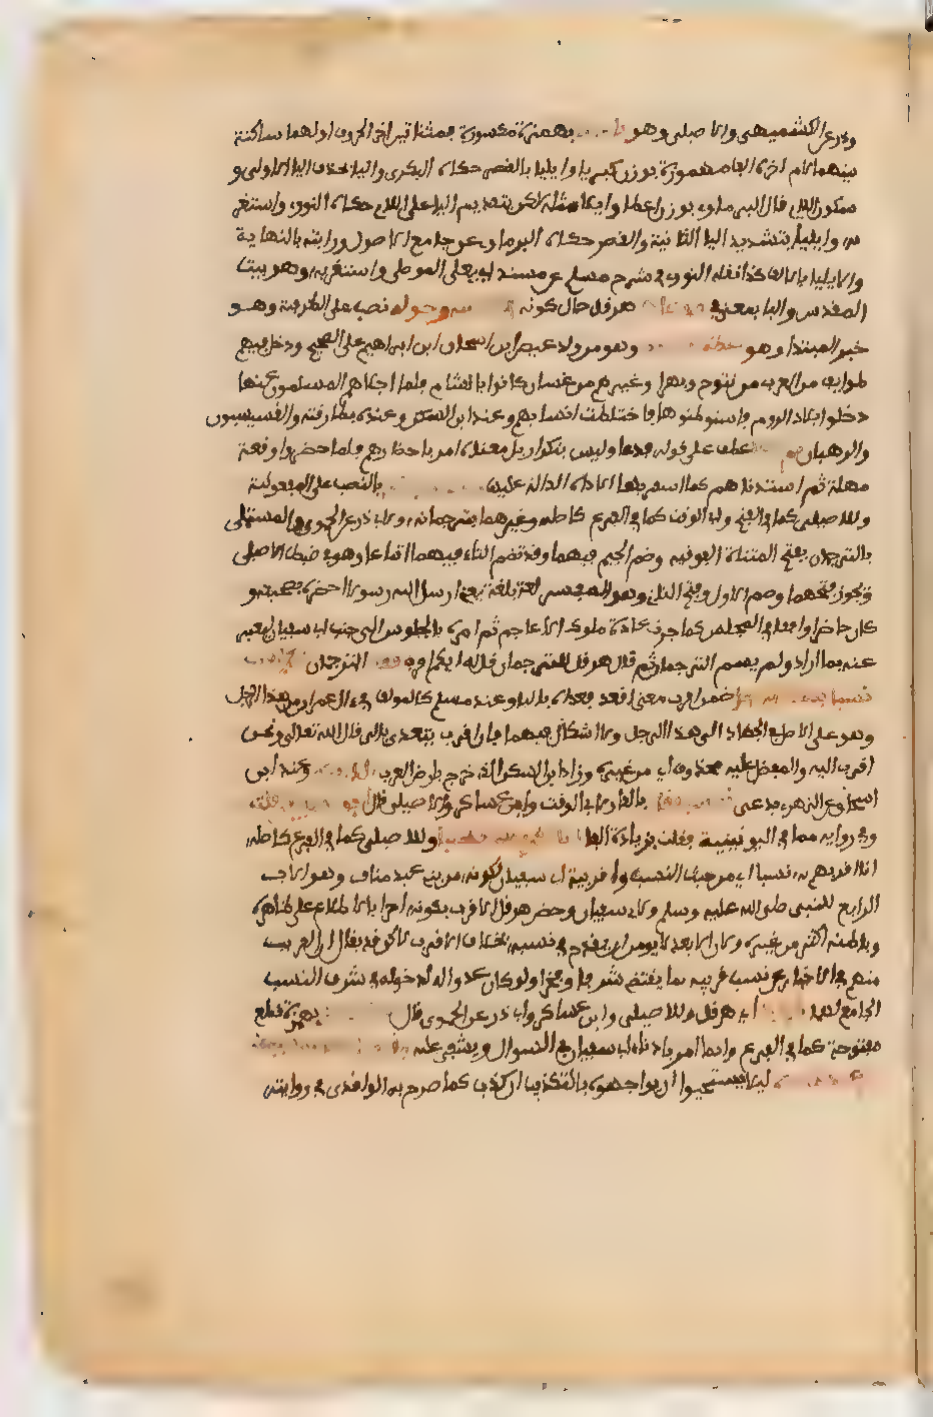 وذر عن الكشميهني والاصيلي وهو بهمزة مكسورة فمثناتين اخر الحروف اولهما ساكنة
بينهما لام اخره الف مهموزة بوزن كبرياء وايليا بالقصر حكاه البكري واليا بحذف اليا الاولى و
سكون اللام قال البرماوي بوزن اعطا وايلاء مثله لكن بتقديم اليا على اللام حكاه النووي واستغر
به وايليا بتشديد اليا الثانية والقصر حكاه البرماوي عن جامع الاصول ورايته بالنهاية
والايليا بالالف كذا نقله النووي في شرح مسلم عن مسند ابي يعلى الموصلي واستغربه وهو بيت
المقدس والبا بمعنى في هرقل حال كونه وحوله نصب على الظرفية وهو
خبر المبتدا وهو وهو من ولد عيص ابن اسحاق ابن ابراهيم على الصحيح ودخل فيهم
طوايف من العرب من تنوخ وبهرا وغيرهم من غسان كانوا بالشام فلما اجلاهم المسلمون عنها
دخلوا بلاد الروم فاستوطنوها فاختلطت انسابهم وعند ابن السكن وعنده بطارقته والقسيسون
والرهبان عطف على قوله فدعا وليس بتكرار بل معناه امر باحضارهم فلما حضروا وقعة
مهلة ثم استدناهم كما اشعر بها الاداة الدالة عليه بالنصب على المفعولية
وللاصيلي كما في الفتح ولابي الوقت كما في الفرع كاصله وغيرهما بترجمانه ولابي ذر عن الحموي والمستملي
بالترجمان بفتح المثناة الفوقيه وضم الجيم فيهما وقد تضم التاء فيهما اتباعا وهو في ضبط الاصيلي
ويجوز فتحهما وضم الاول وفتح الثاني وهو المفسر لغة بلغة يعني ارسل اليه رسولا احضره بصحبته و
كان حاضرا واقفا في المجلس كما جرت عادة ملوك الاعاجم ثم امره بالجلوس الى جنب ابي سفيان ليعبر
عنه بما اراد ولم يسم الترجمان ثم قال هرقل للترجمان قل له ايكم اقرب الترجمان
ضمن اقرب معنى اقعد فعداه بالبا وعند مسلم كالمولف في ال عمران من هذا الرجل
وهو على الاصل وفي الجهاد الى هذا الرجل ولا اشكال فيهما فان اقرب يتعدى بالى قال الله تعالى ونحن
اقرب اليه والمفضل عليه محذوف اي من غيره وزاد ابن السكن الذي خرج بارض العرب وعند ابن
اسحق عن الزهري يدعي بالفا ولابي الوقت وابن عساكر والاصيلي قال
وفي رواية مما في اليونينية فقلت بزيادة الفا وللاصيلي كما في الفرع كاصله
انا اقربهم به نسبا اي من حيث النسب واقربية ابي سفيان لكونه من بني عبد مناف وهو الاب
الرابع للنبي صلى الله عليه وسلم ولابي سفيان وخص هرقل الاقرب بكونه احرى بالاطلاع على ظاهره
وباطنه اكثر من غيره ولان الابعد لا يومن ان يقدح في نسبه بخلاف الاقرب لكن قد يقال ان القريب
متهم في الاخبار عن نسب قريبه بما يقتضي شرفا وفخرا ولو كان عدوا له لدخوله في شرف النسب
الجامع لهما اي هرقل وللاصيلي وابن عساكر وابي ذر عن الحموي قال بهمزة قطع
مفتوحة كما في الفرع وانما امر بادناء ابي سفيان ليمعن في السوال ويشفي غله
ليلا يستحيوا ان يواجهوه بالتكذيب ان كذب كما صرح به الواقدي في روايته